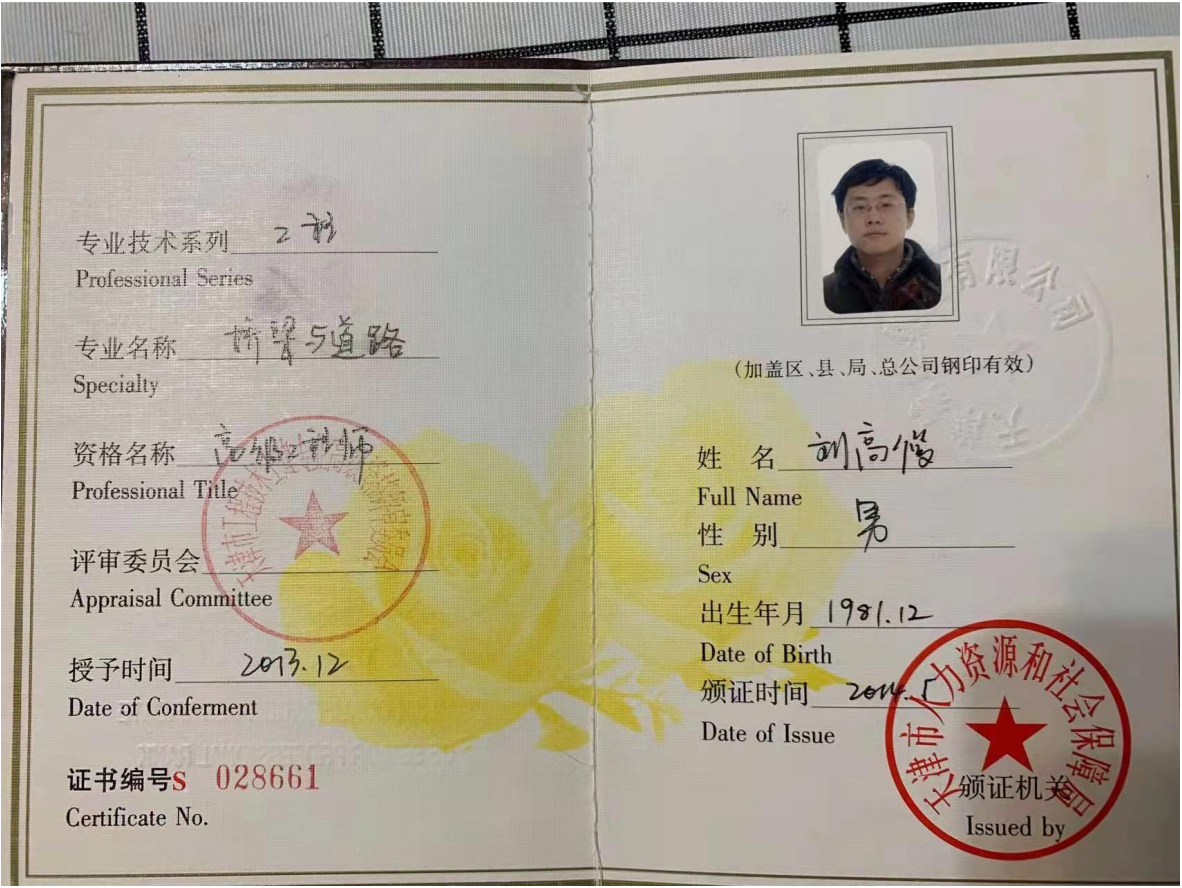 专业技术系列 工程
Professional Series
专业名称 桥梁与道路
Specialty
资格名称 高级工程师
Professional Title
评审委员会
Appraisal Committee
授予时间 2013.12
Date of Conferment
证书编号S 028661
Certificate No.
有限公司
天津
(加盖区、县、局、总公司钢印有效)
姓 名 刘高俊
Full Name
性 别 男
Sex
出生年月 1981.12
Date of Birth
颁证时间 2014.5
Date of Issue
天津市人力资源和社会保障局
颁证机关
Issued by